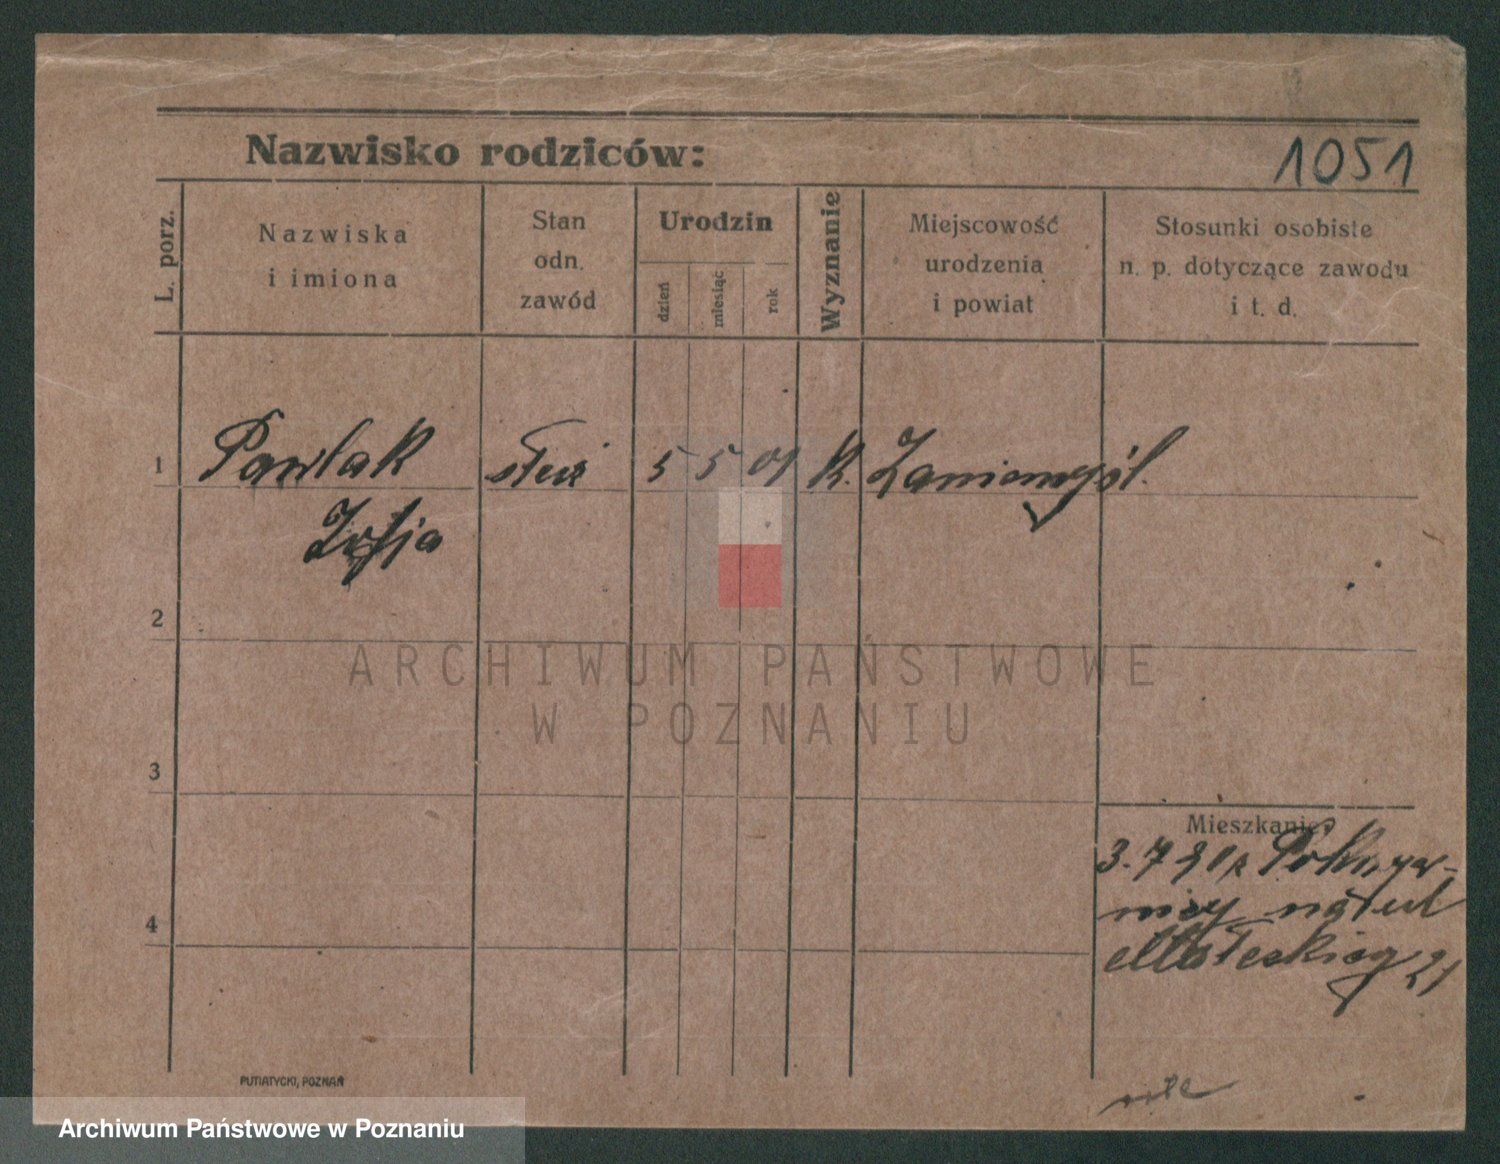 Nazwisko rodziców:
1051
L. porz.
Nazwiska
i imiona
Stan
odn.
zawód
Urodzin
dzień
miesiąc
rok
Wyznanie
Miejscowość
urodzenia
i powiat
Stosunki osobiste
n. p. dotyczące zawodu
i t. d.
1
Pawlak
Zofja
5 5 01
K.
Zaniemyśl.
2
ARCHIWUM PAŃSTWOWE
W POZNANIU
3
4
Mieszkanie
3.7
na ul
Małeckiej 21
PUTIATYCKI, POZNAŃ
Archiwum Państwowe w Poznaniu